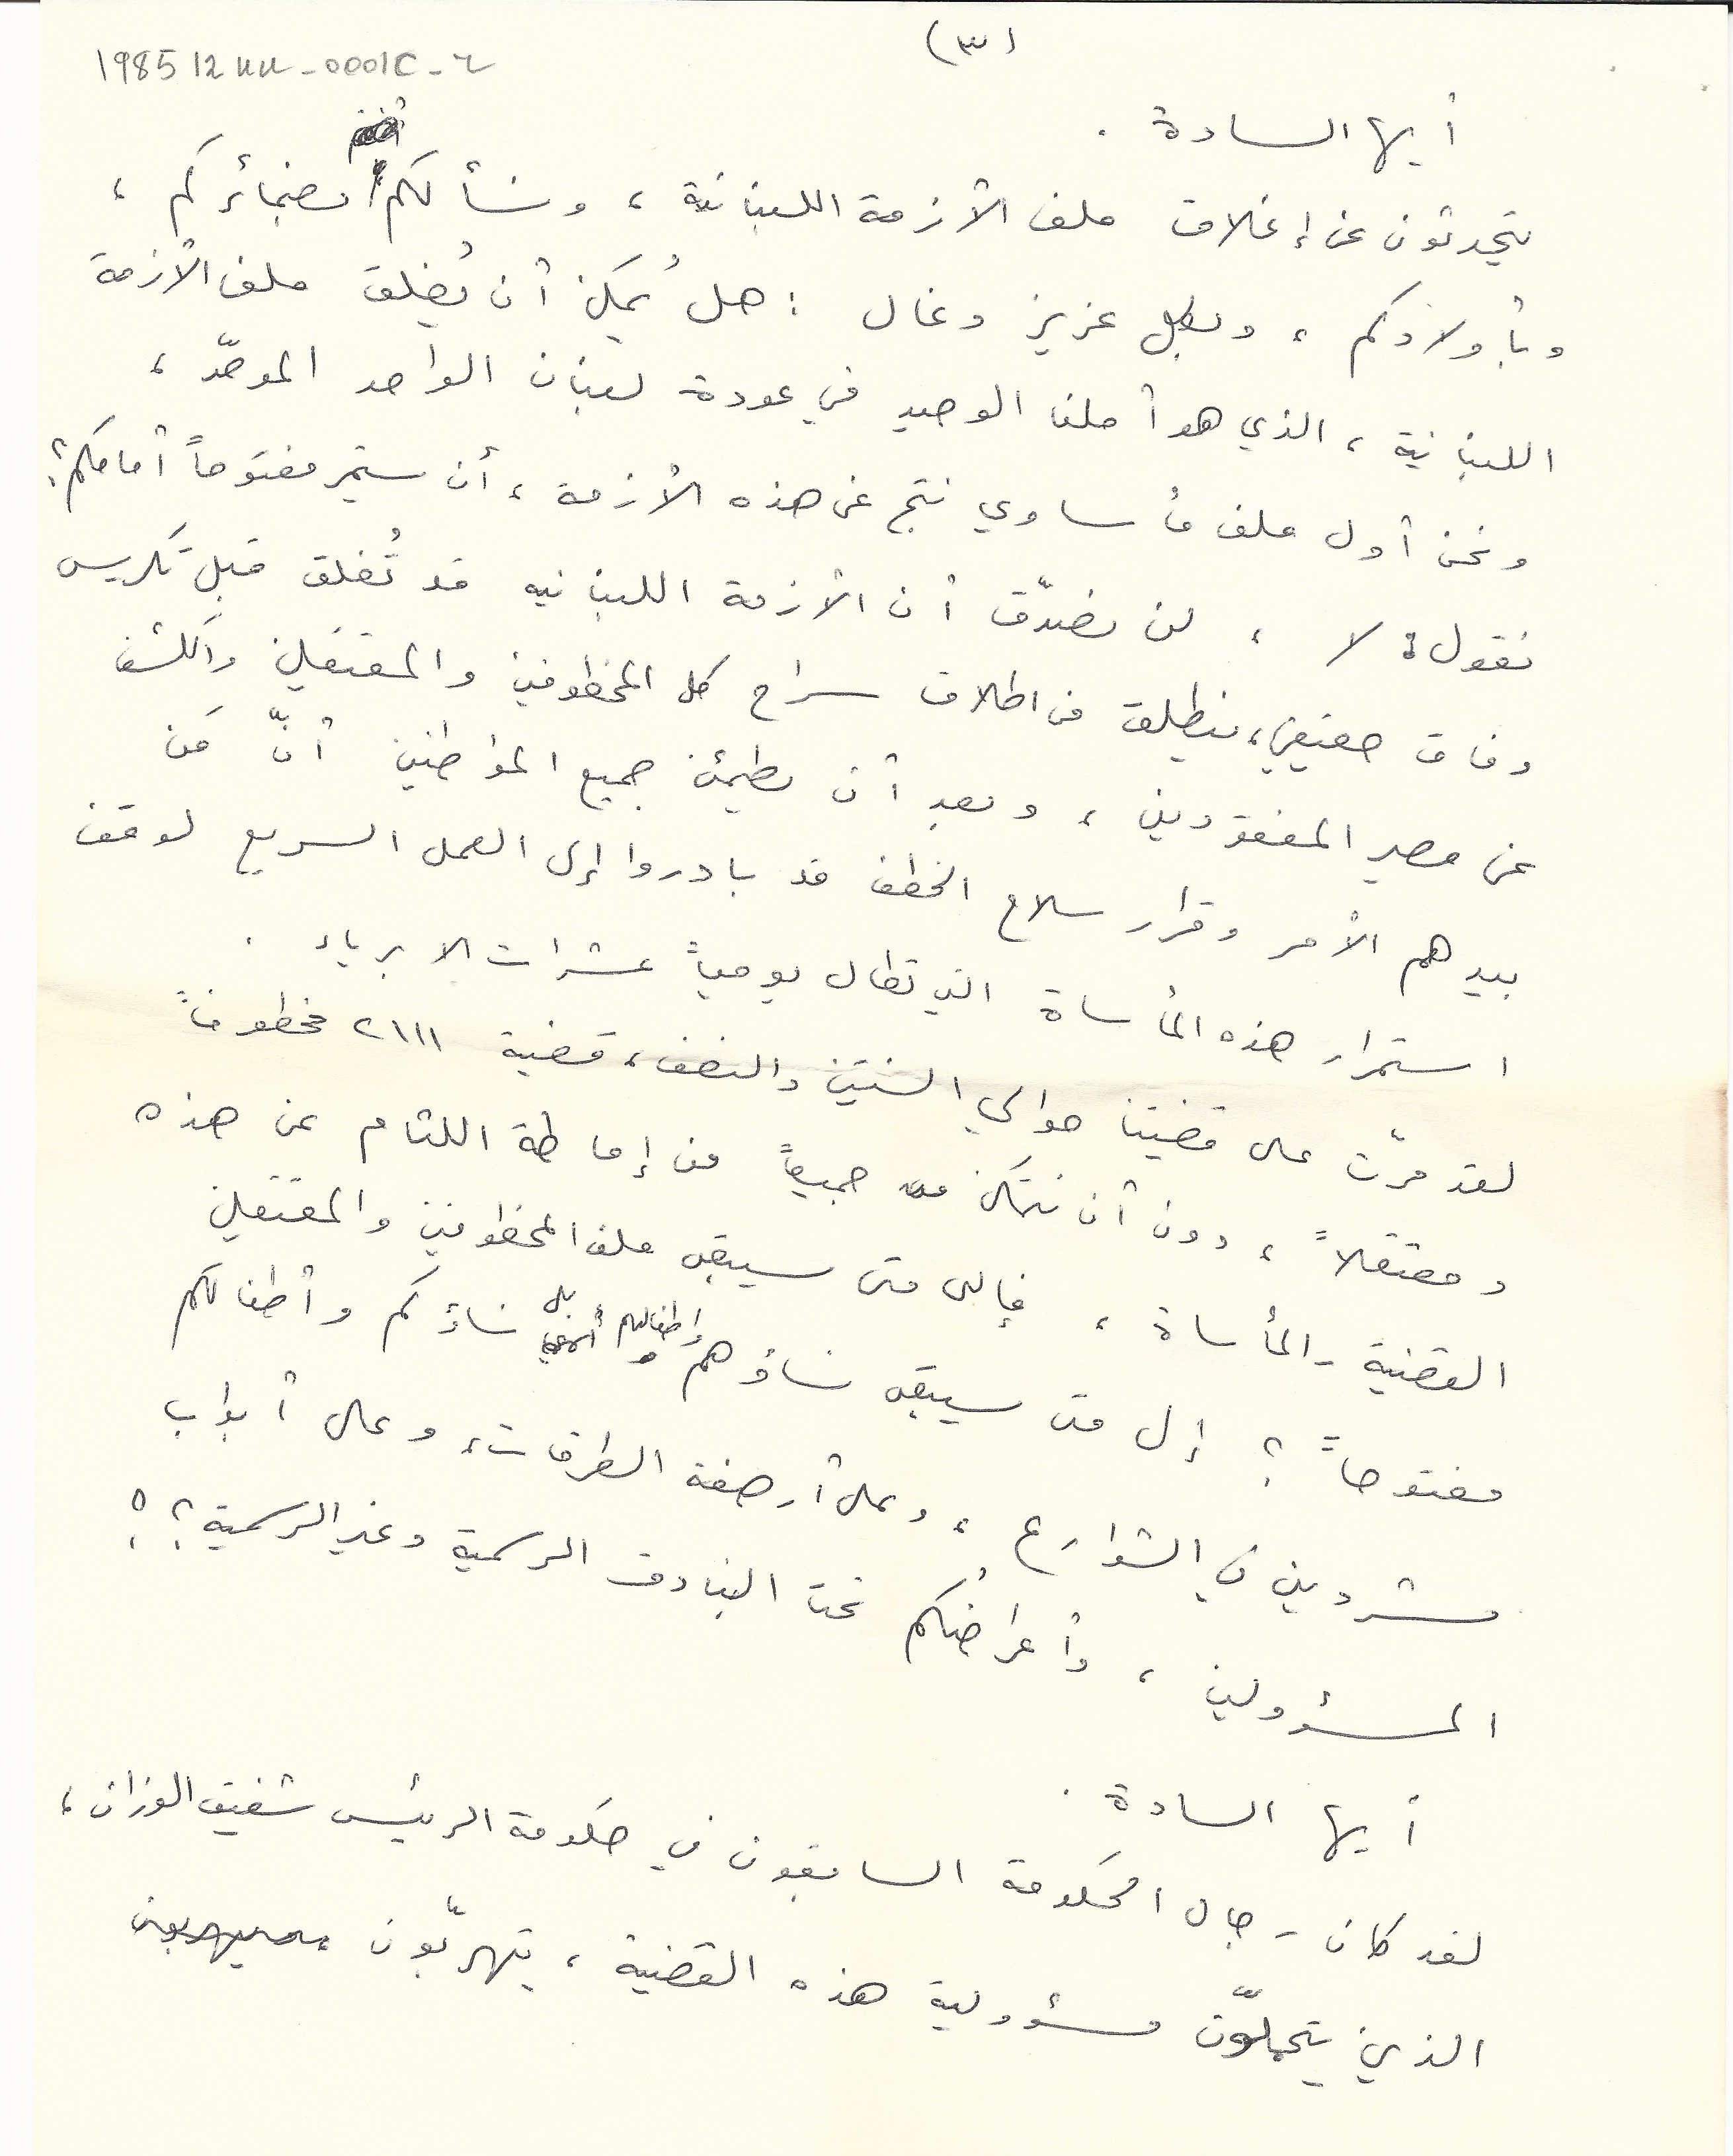 (٣)
198512uu-0001c-٦
أيها السادة .
تتحدثون عن إغلاق ملف الأزمة اللبنانية ، ونسألكم بضمائركم ،
وبأولادكم ، وبكل عزيز وغال : هل يُمكن أن يُغلق ملف الأزمة
اللبنانية ، الذي هو أملنا الوحيد في عودة لبنان الواحد الموحّد ،
ونحن أول ملف مأساوي نتج عن هذه الأزمة ، أن يستمر مفتوحاً أمامكم؟
نقول: لا ، لن نصدّق أن الأزمة اللبنانيه قد تُغلق قبل تكريس
وفاق حقيقي، ينطلق من اطلاق سراح كل المخطوفين والمعتقلين والكشف
عن مصير المفقودين ، وبعد أن يطمئن جميع المواطنين أنّ مَن
بيدهم الأمر وقرار سلاح الخطف قد بادروا إلى العمل السريع لوقف
استمرار هذه المأساة التي تطال يومياً عشرات الابرياء .
لقد مرّت على قضيتنا حوالي السنتين والنصف، قضية ٢١١١ مخطوفاً
ومعتقلاً ، دون أن نتمكن جميعاً من إماطة اللثام عن هذه
القضية - المأساة ، فإلى متى سيبقى ملف المخطوفين والمعتقلين
مفتوحاً ؟ إلى متى سيبقى نساؤهم وأطفالهم بل نساؤكم وأطفالكم
مشردين في الشوارع ، وعلى أرصفة الطرقات، وعلى أبواب
المسؤولين ، وأعراضُكم تحت البنادق الرسمية وغير الرسمية؟؟
أيها السادة .
لقد كان رجال الحكومة السابقون في حكومة الرئيس شفيق الوزان ،
الذين يتحملّون مسؤولية هذه القضية ، يتهربّون